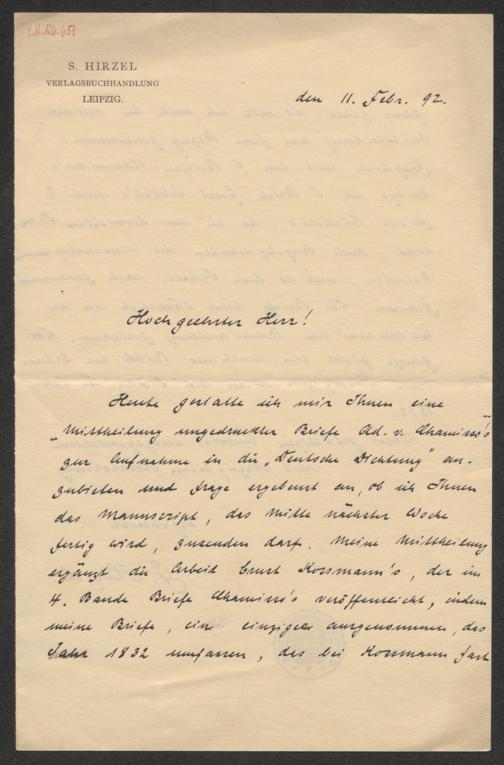 S. HIRZEL
VERLAGSBUCHHANDLUNG
LEIPZIG.
den 11. Febr. 92.
Hochgeehrter Herr!
Heute gestatte ich mir Ihnen eine
"Mittheilung ungedruckter Briefe Ad. v. Chamisso's
zur Aufnahme in die „Deutsche Dichtung" an-
zubieten und frage ergebenst an, ob ich Ihnen
das Manuscript, das Mitte nächster Woche
fertig wird, zusenden darf. Meine Mittheilung
ergänzt die Arbeit Ernst Kossmann's, der im
4. Bande Briefe Chamisso's veröffentlicht, indem
meine Briefe, ein einziger ausgenommen, das
Jahr 1832 umfassen, das bei Kossmann fast